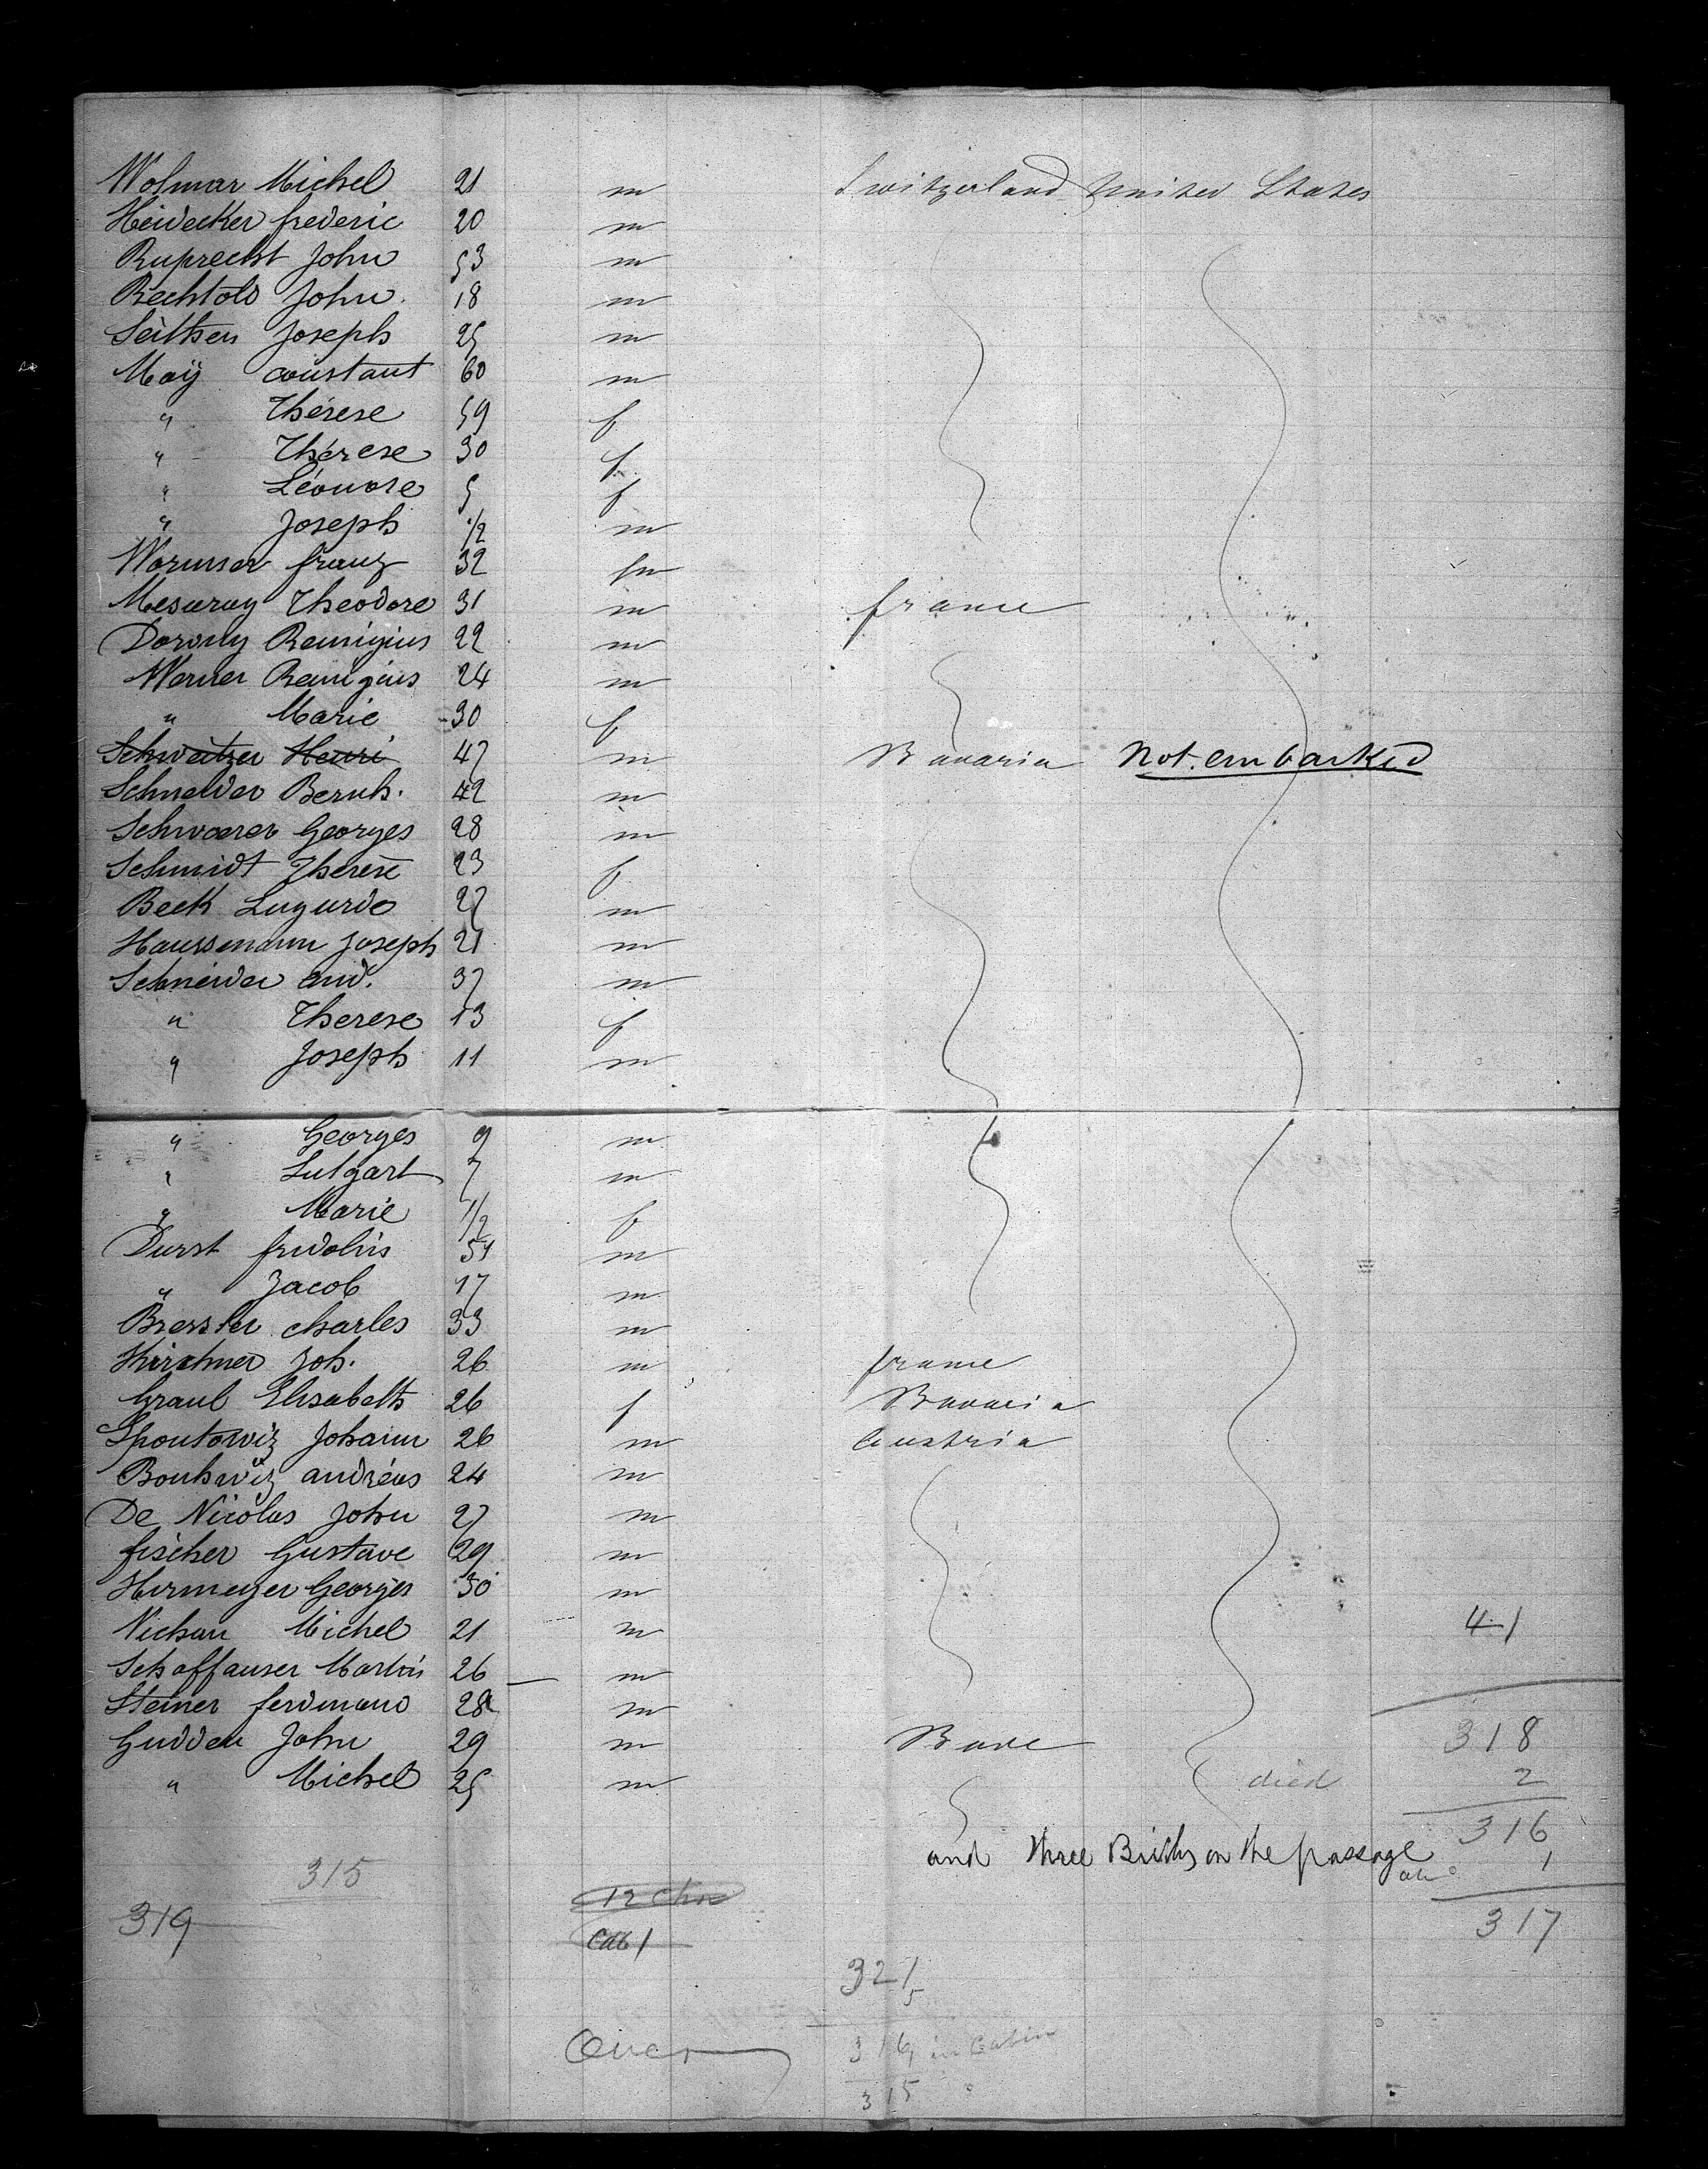 Wolmar Michel 21 m Switzerland United States
Heidecker frederic 20 m
Ruprecht John 53 m
Bechtold John. 18 m
Seithen Joseph 25 m
Maÿ constant 60 m
" Thérese 59 f
" Thérese 30 f
" Léonore 5 f
" Joseph 1/2 m
Wormser franz 32 m
Mesuruy Theodore 31 m france
Dorvny Remigius 22 m
Werner Remigius 24 m
" Marie 30 f
Schweitzer Henri 47 m Bavaria Not embarked
Schneider Bernh. 42 m
Schwoerer Georges 28 m
Schmidt Therese 23 f
Beck Lugurde 27 m
Haussmann Joseph 21 m
Schneider and. 37 m
" Therese 13 f
" Joseph 11 m
" Georges 9 m
" Lutgart 7 m
" Marie 1/2 f
Durst fridolin 54 m
" Jacob 17 m
Bressler charles 33 m
Kirchner Joh. 26 m france
Graul Elisabeth 26 f Bavaria
Spoutowiz Johann 26 m austria
Bouhwiz andréas 24 m
De Nicolas John 27 m
fischer Gustave 29 m
Hurmeyer Georges 30 m
Nichan Michel 21 m 41
Schaffauser Martin 26 m
Steiner ferdinand 28 m
Gudden John 29 m Bade 318
" Michel 25 m died 2
316
and three Births on the passage 1
315
319 317
Cab 1
321
5
Over 316, in Cabin
315